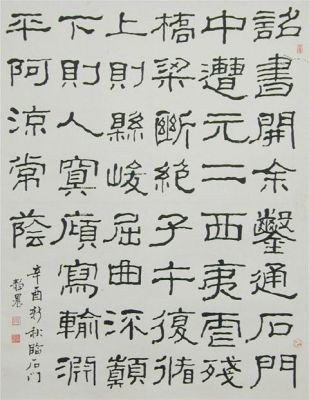 詔書開余鑿通石門
中遭元二西夷虐殘
橋梁斷絕子午復循
上則縣峻屈曲流顛
下則入冥廎寫輸淵
平阿涼常蔭
辛酉新秋臨石门
靜農